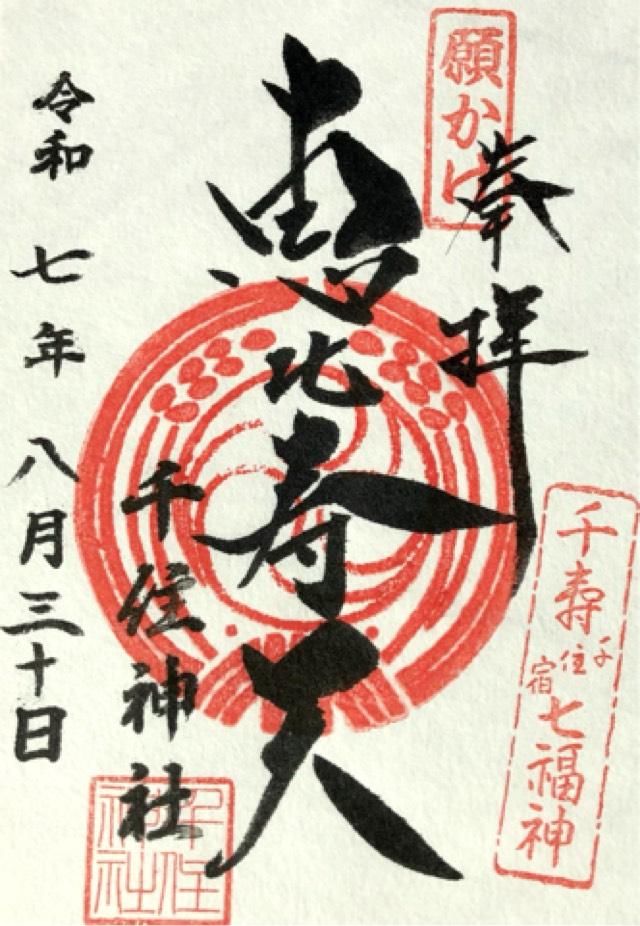 願かけ
奉拝
恵比寿天
千住神社
令和 七年 八月三十日
千寿
千住宿
七福神
千住神社